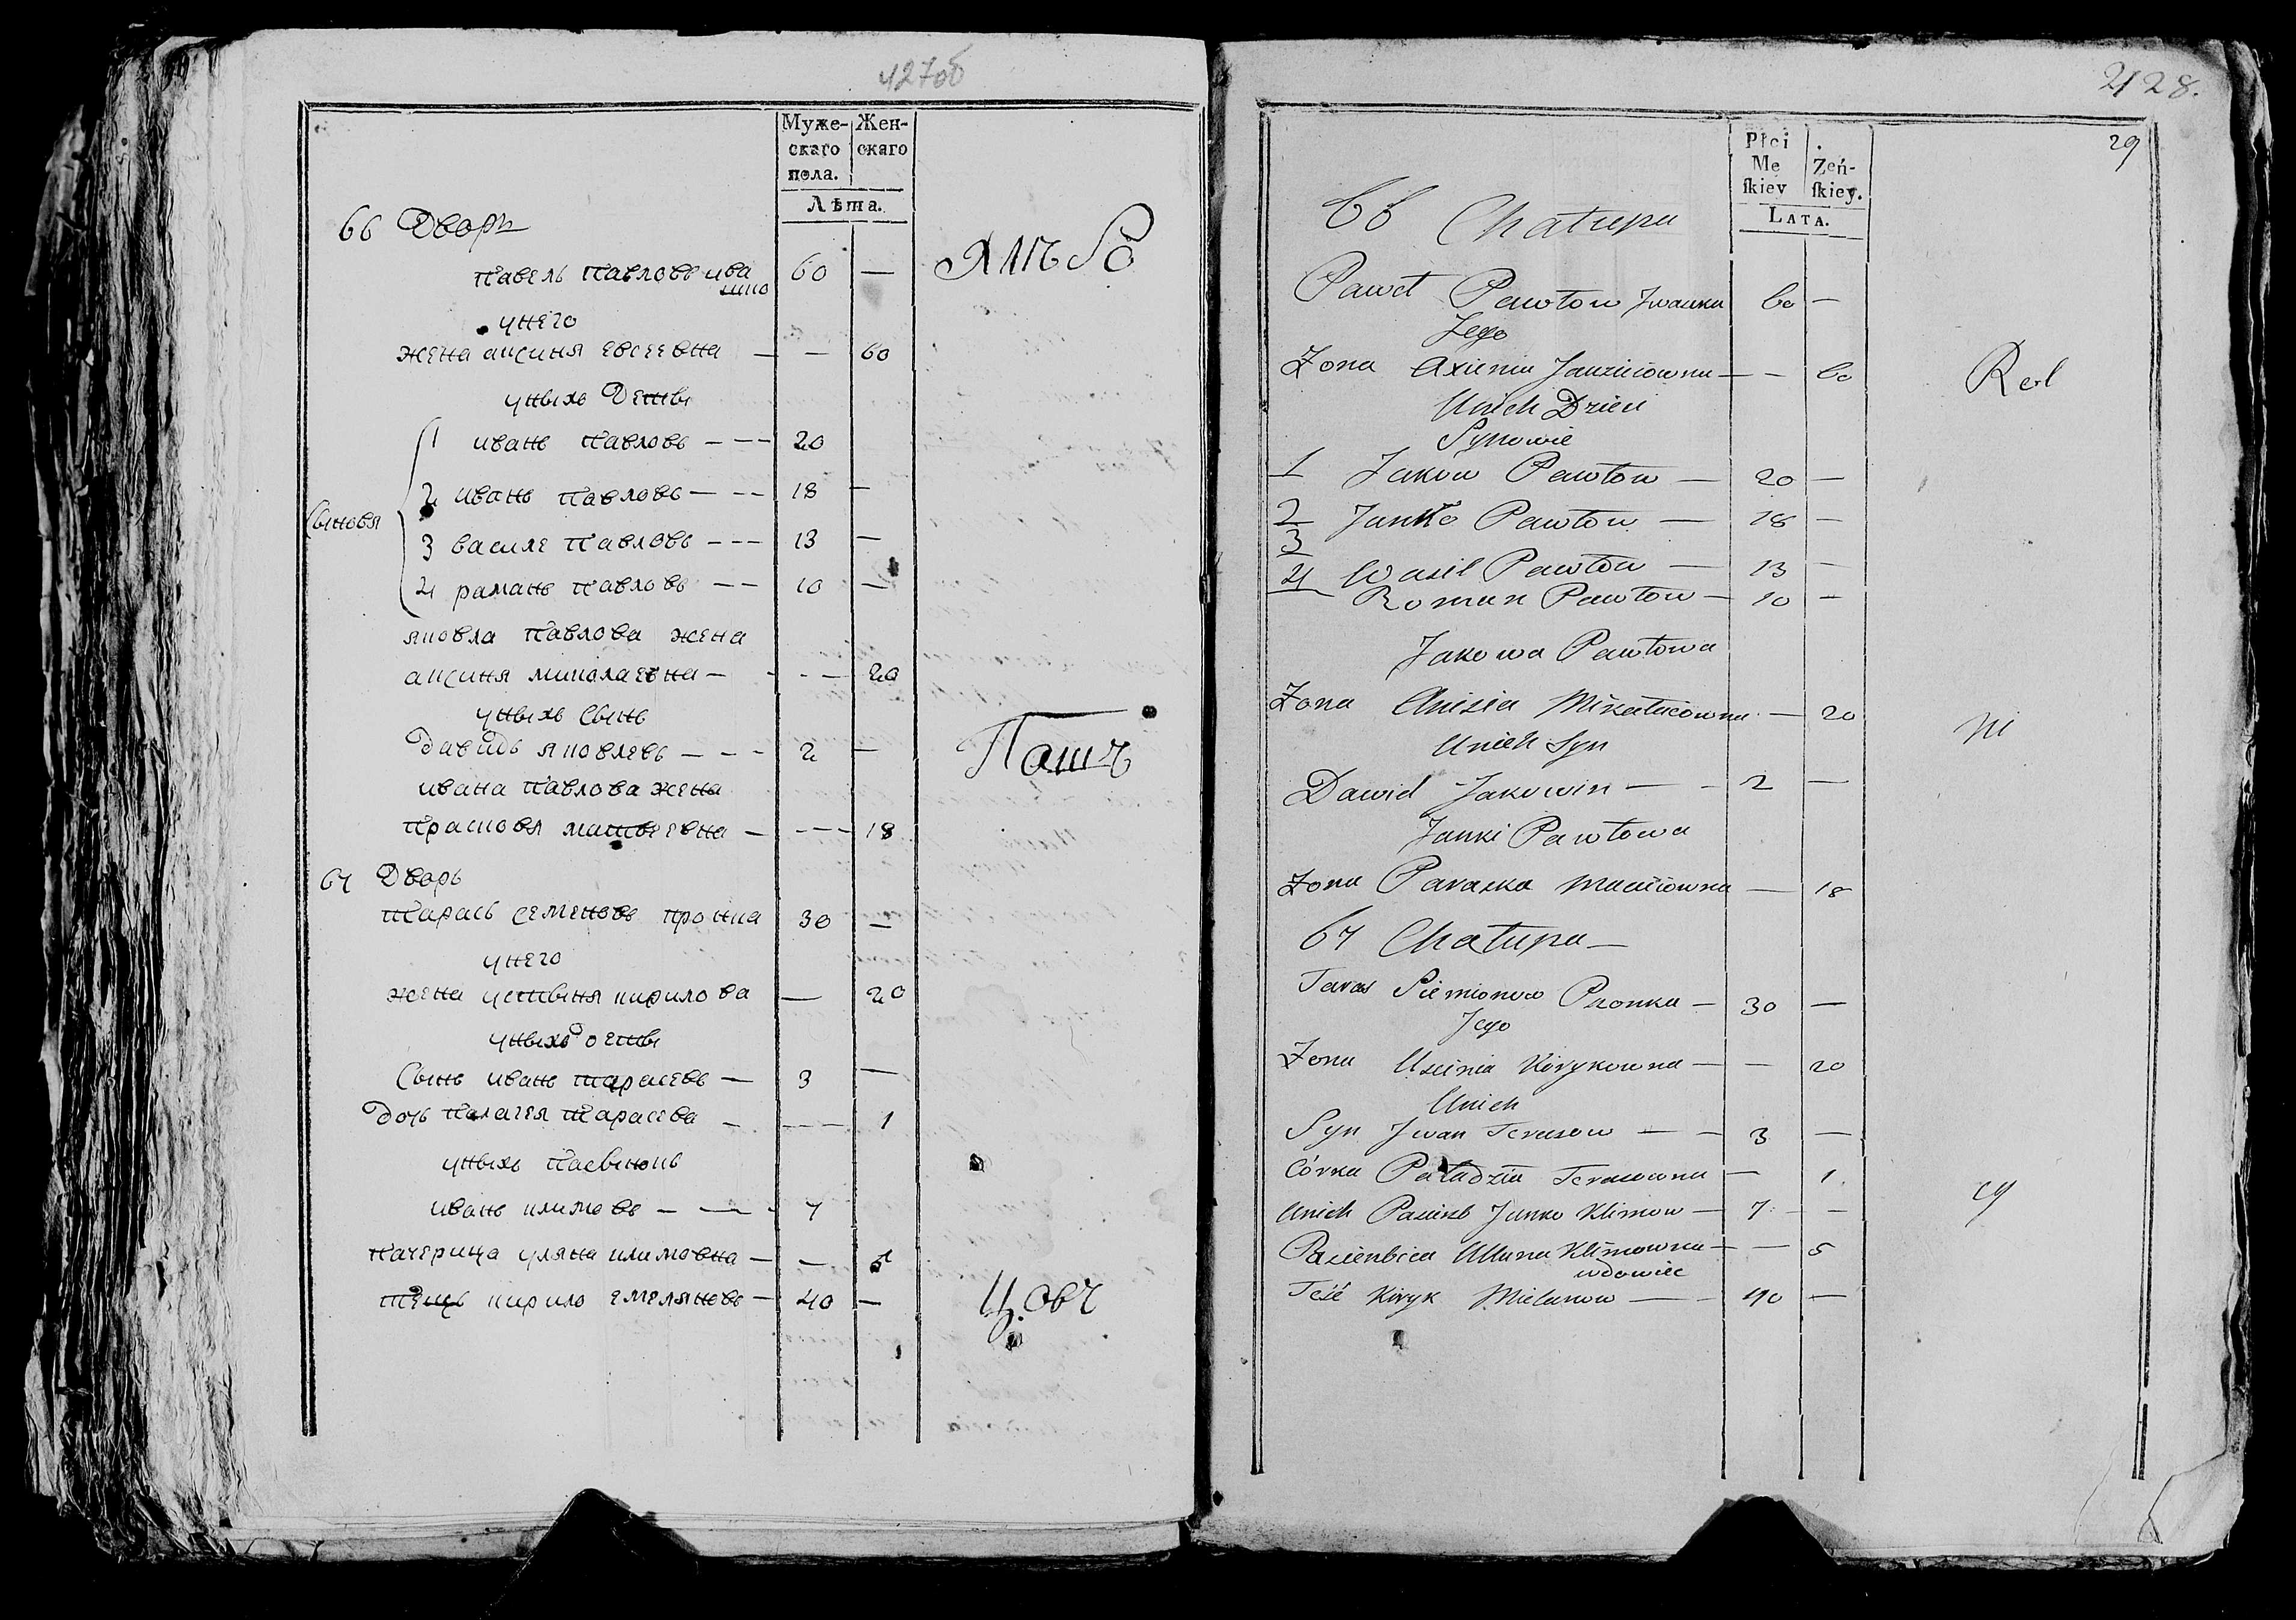 427об
Муже- Жен-
скаго скаго
пола.
Лѣта.
66 Дворъ
павель павловь ива 60 —
шко
унего
жена аксиня евсеевна — — 60
уныхь Дети
Сыновя
1 ивань павловь - - - 20
2 ивань павловь - - - 18 —
3 василе павловь - - - 13 —
4 рамань павловь - - 10 —
яковла павлова жена
аксиня миколаевна - - - — 20
уныхь Сынь
давидь яковлевь - - - 2 —
ивана павлова жена
прасковя матвеевна - - - - 18
67 Дворь
тарась семеновь пронка 30 —
унего
жена устиня кирилова — 20
уныхь дети
Сынь ивань тарасевь — 3 —
дочь палагея тарасева - - - - 1
уныхь пасынокь
ивань климовь - — - 7
пачерица уляна климовна — —
тесць кирило емеляновь — 40 —
428.
29
Płci
Mę Żeń-
skiey skiey.
Lata.
66 Chałupa
Paweł Pawłow Iwanka 60 —
Jego
Zona Axienia Jauzieiowna — — 60
Unich Dzieci
Synowie
1 Jakow Pawłow — 20 —
2 Janko Pawłow — 18 —
3
4 Wasil Pawłow — 13 —
Roman Pawłow — 10 —
Jakowa Pawłowa
Zona Anisia Mikałaiowna — 20
Unich Syn
Dawid Jakowin — - 2 —
Janki Pawłowa
Zona Paraska Macieiowna — 18
67 Chałupa —
Taras Siemionow Pronka — 30 —
Jego
Zona Uscinia Kirykowna — — 20
Unich
Syn Iwan Tarasow — - 3 —
Córka Paładzia Tarasowna — 1
Unich Pasierb Janko Klimow — 7 - —
Pasierbica Ullana Klimowna — — 5
wdowiec
Teść Kiryk Mielanow — - 40 —